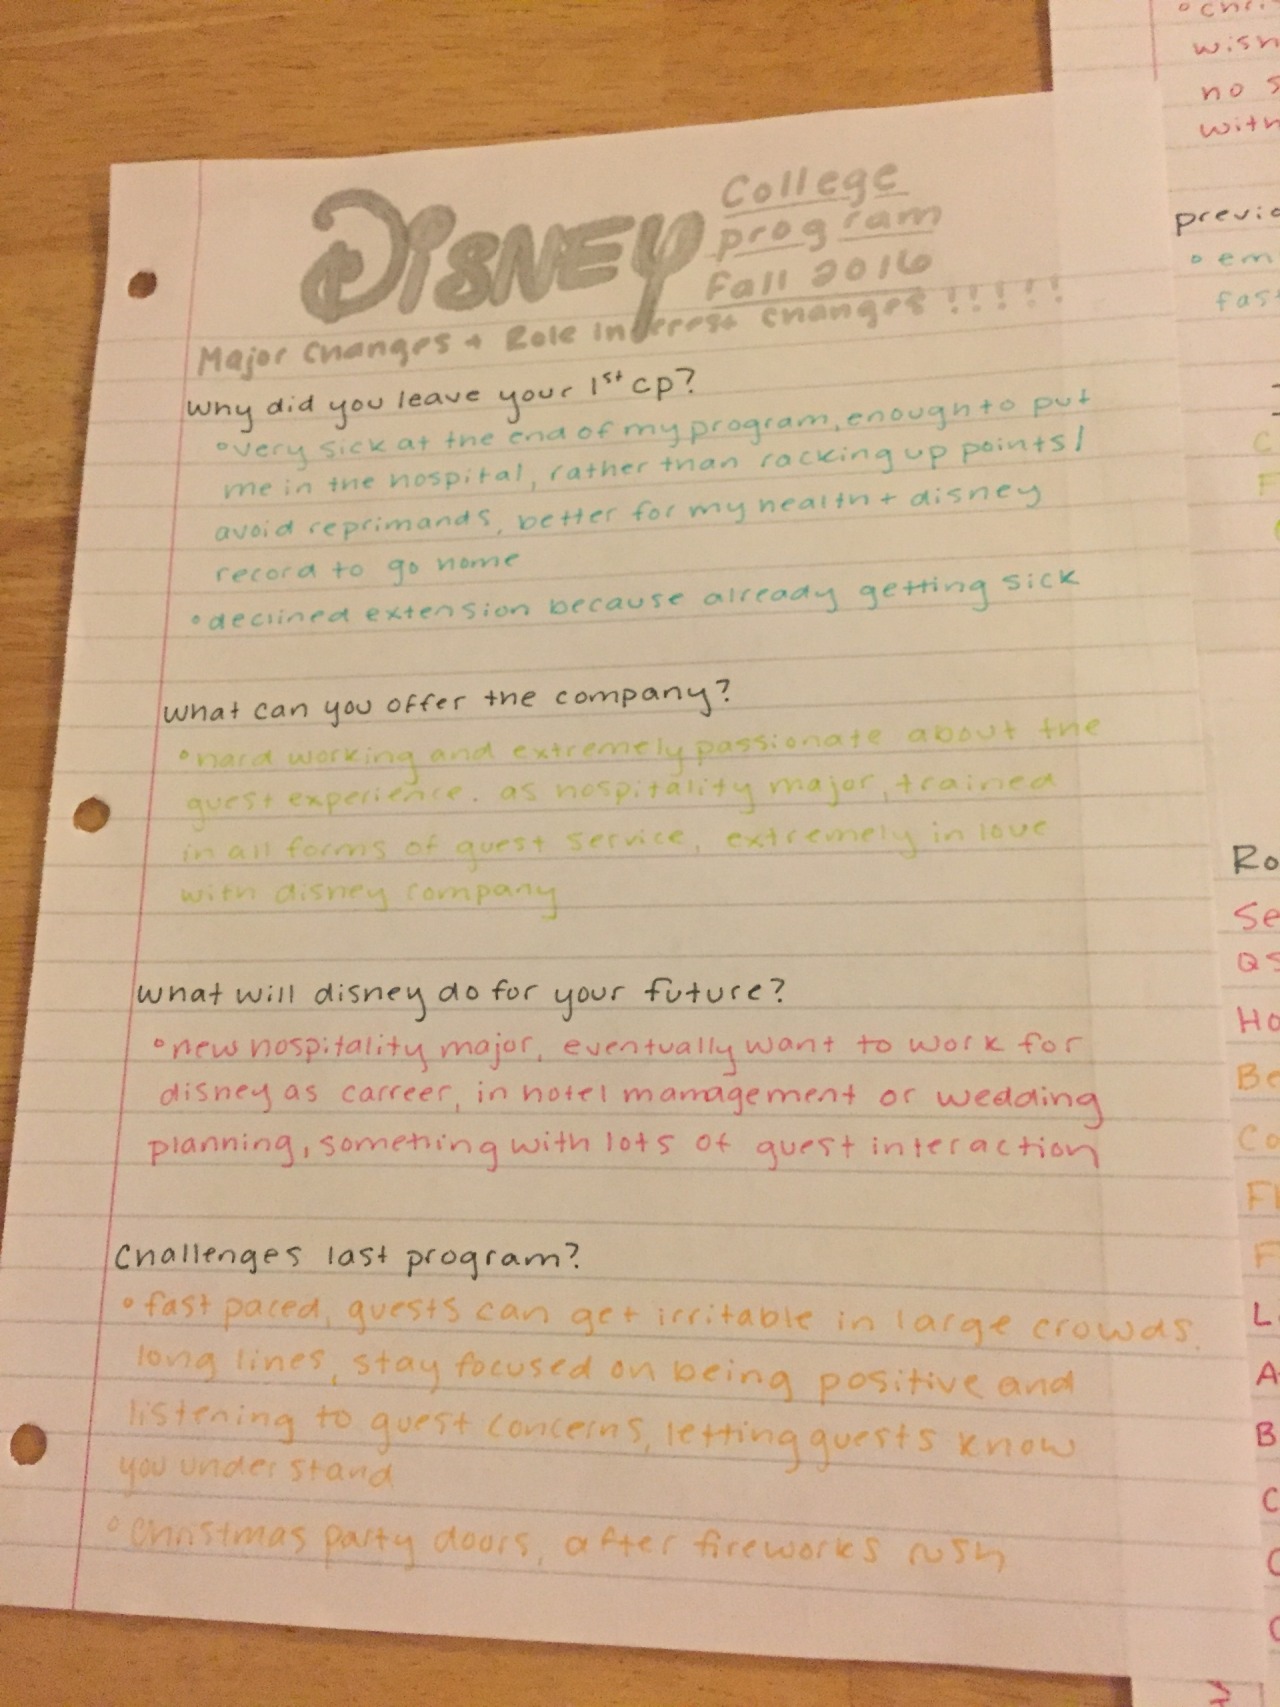 DISNEY College
program
Fall 2016
Major Changes + Role Interest Changes !!!!!
Why did you leave your 1st cp?
• very sick at the end of my program, enough to put
me in the hospital, rather than racking up points/
avoid reprimands, better for my health + disney
record to go home
• declined extension because already getting sick
What can you offer the company?
• hard working and extremely passionate about the
guest experience. as hospitality major, trained
in all forms of guest service, extremely in love
with disney company
What will disney do for your future?
• new hospitality major, eventually want to work for
disney as carreer, in hotel mamagement or wedding
planning, something with lots of guest interaction
Challenges last program?
• fast paced, guests can get irritable in large crowds.
long lines, stay focused on being positive and
listening to guest concerns, letting guests know
you understand
• Christmas party doors, after fireworks rush
wish
no s
with
previo
• em
fast
C
F
Ro
Se
QS
Ho
Be
Co
Fl
F
L
A
B
C